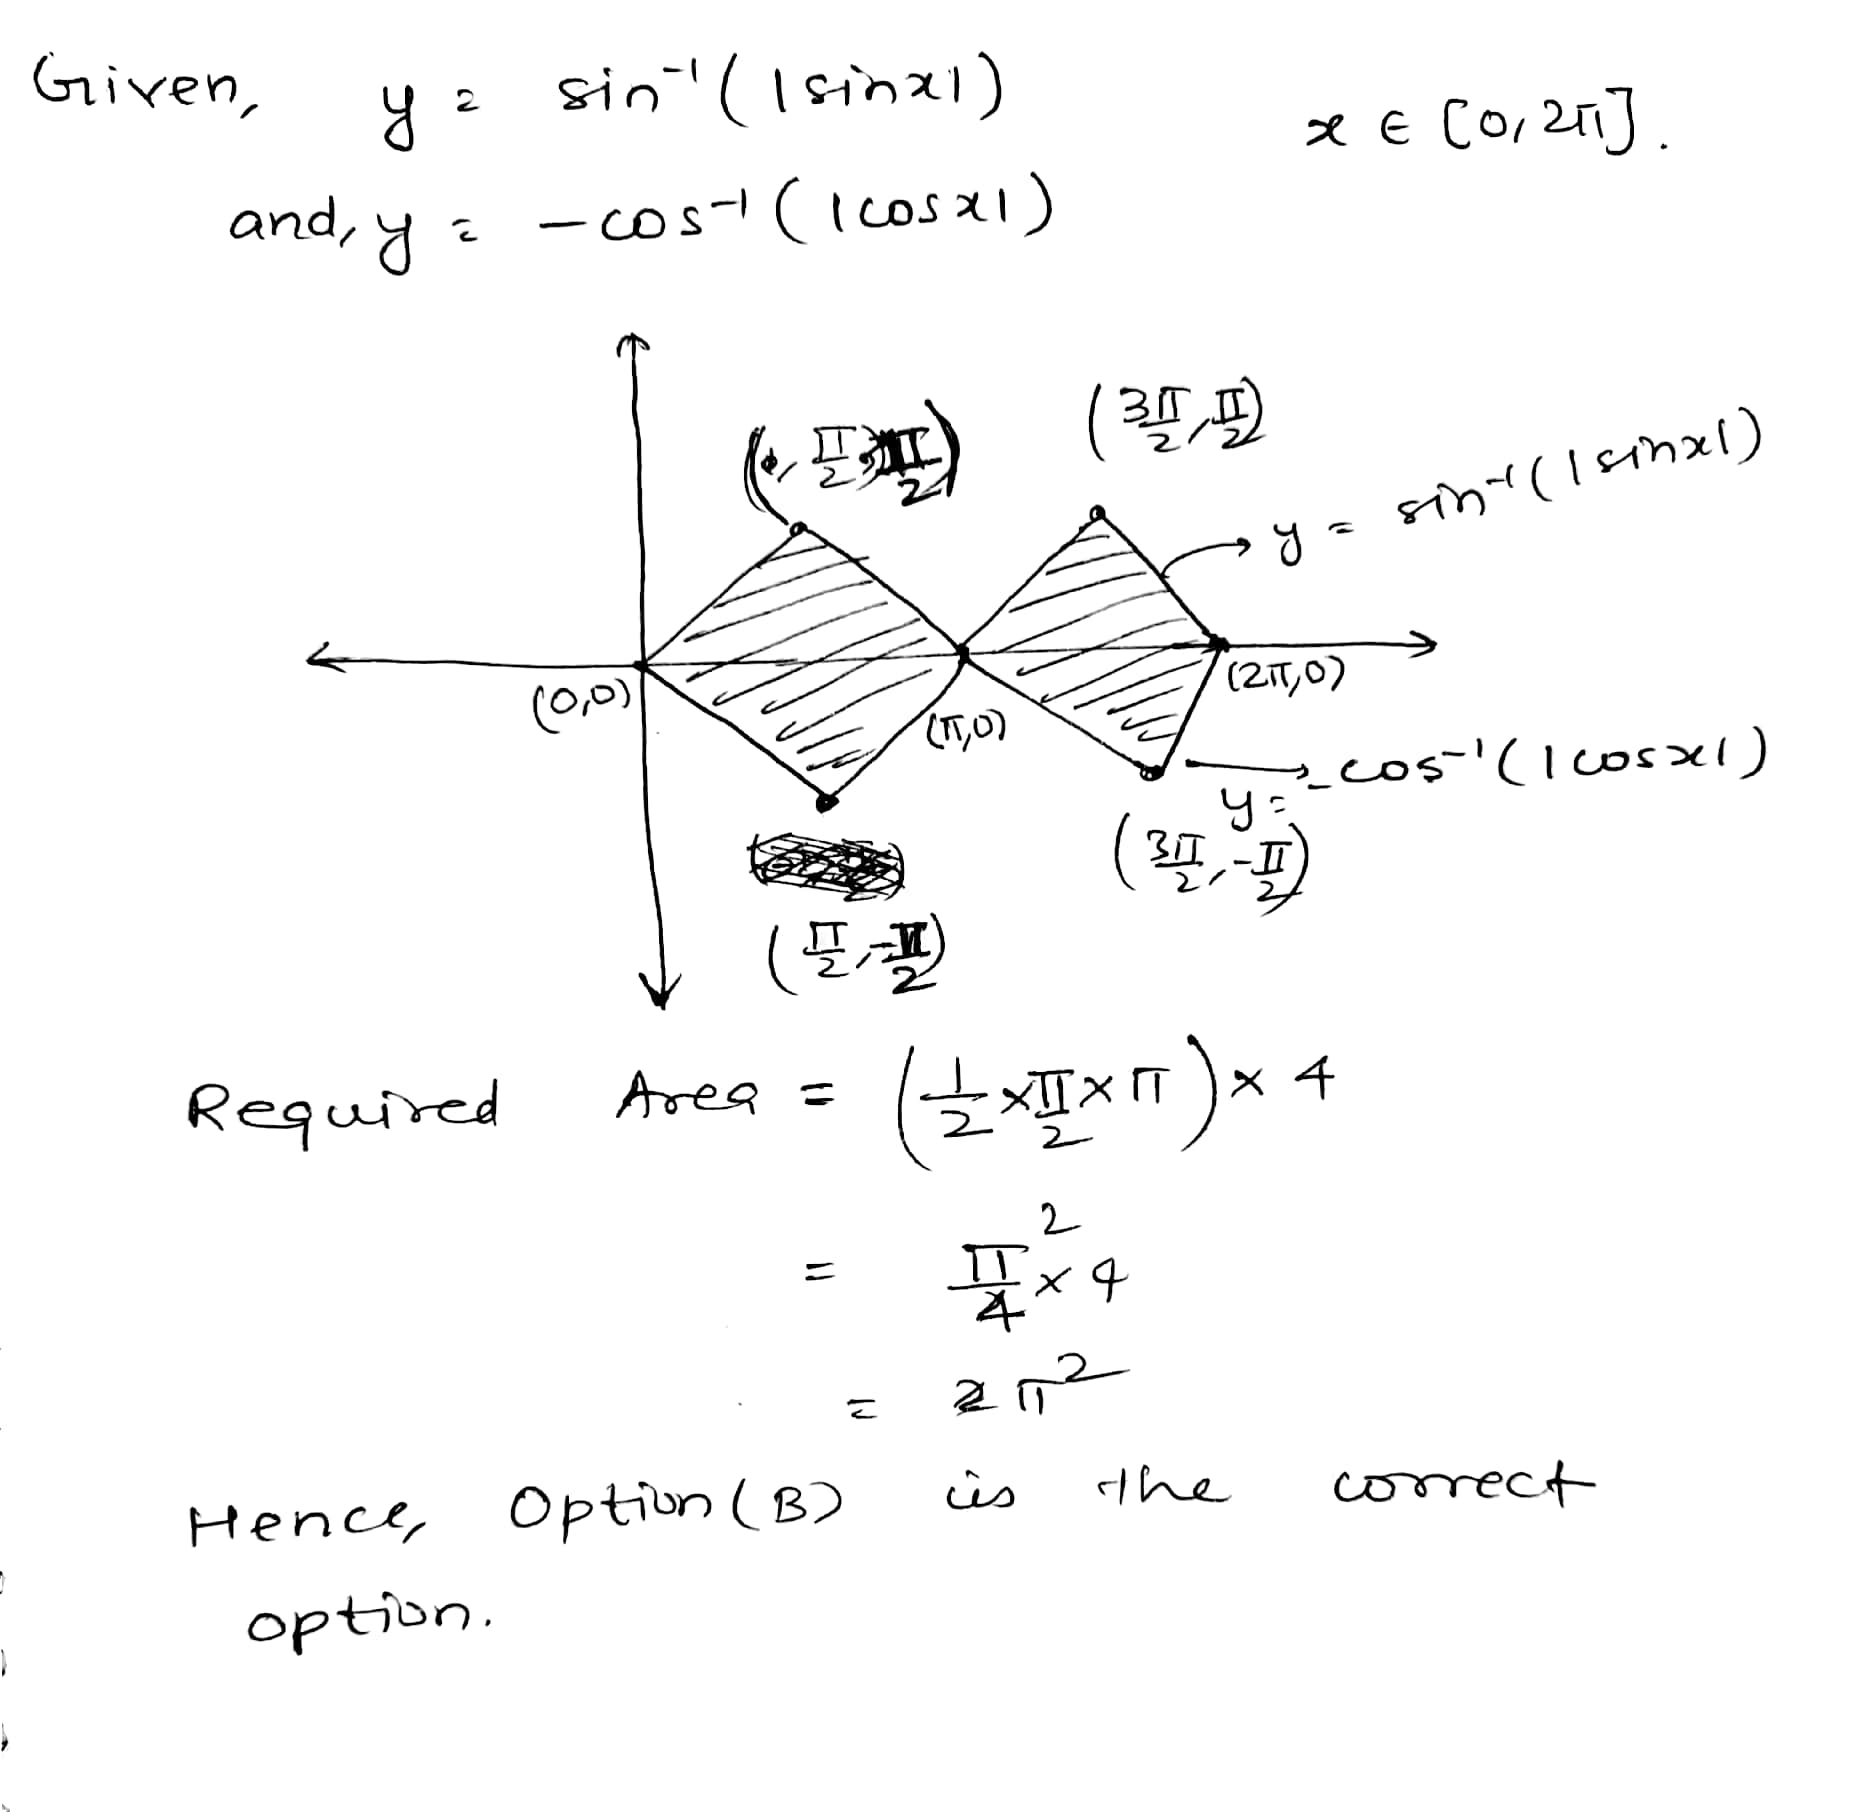 Given, y = sin⁻¹(|sinx|) x ∈ [0, 2π].
and, y = -cos⁻¹(|cosx|)
(π/2, π/2) (3π/2, π/2)
y = sin⁻¹(|sinx|)
(0,0) (π,0) (2π,0)
y = -cos⁻¹(|cosx|)
(3π/2, -π/2)
(π/2, -π/2)
Required Area = (1/2 × π/2 × π) × 4
= π²/4 × 4
= 2π²
Hence, Option (B) is the correct
option.